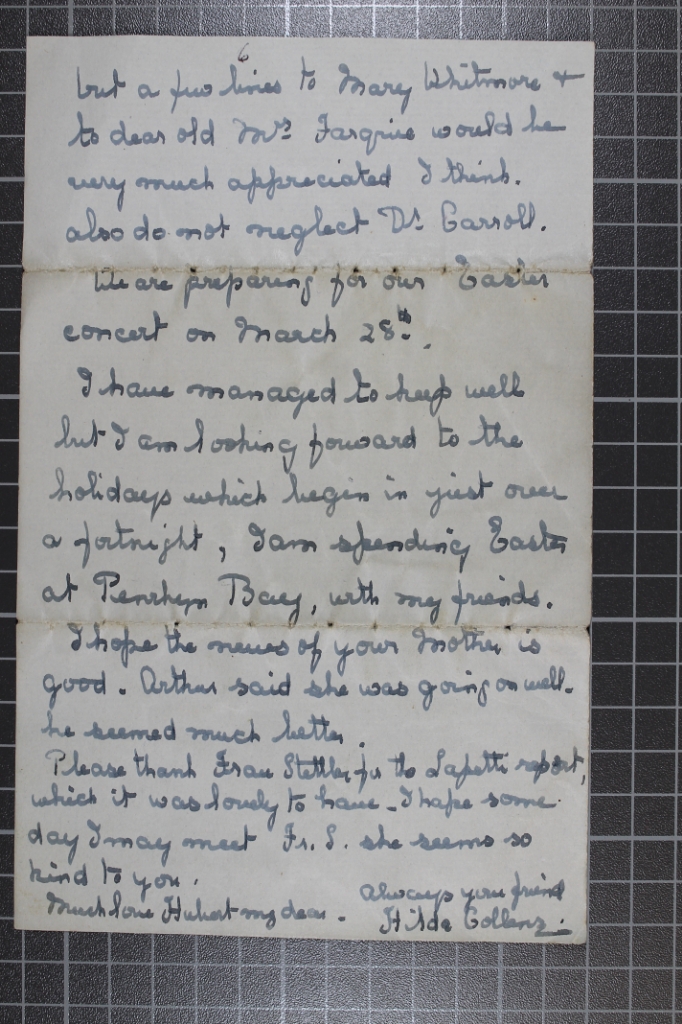 6
but a few lines to Mary Whitmore +
to dear old Mrs Fargrive would be
very much appreciated I think.
also do not neglect Dr Carroll.
We are preparing for our Easter
concert on March 28th.
I have managed to keep well
but I am looking forward to the
holidays which begin in just over
a fortnight, I am spending Easter
at Penrhyn Bay, with my friends.
I hope the news of your Mother is
good. Arthur said she was going on well.
he seemed much better.
Please thank Frau Stettler for the report,
which it was lovely to have - I hope some
day I may meet Fr. S. she seems so
kind to you.
Much love Hubert my dear.
always your friend
Hilda Collens.